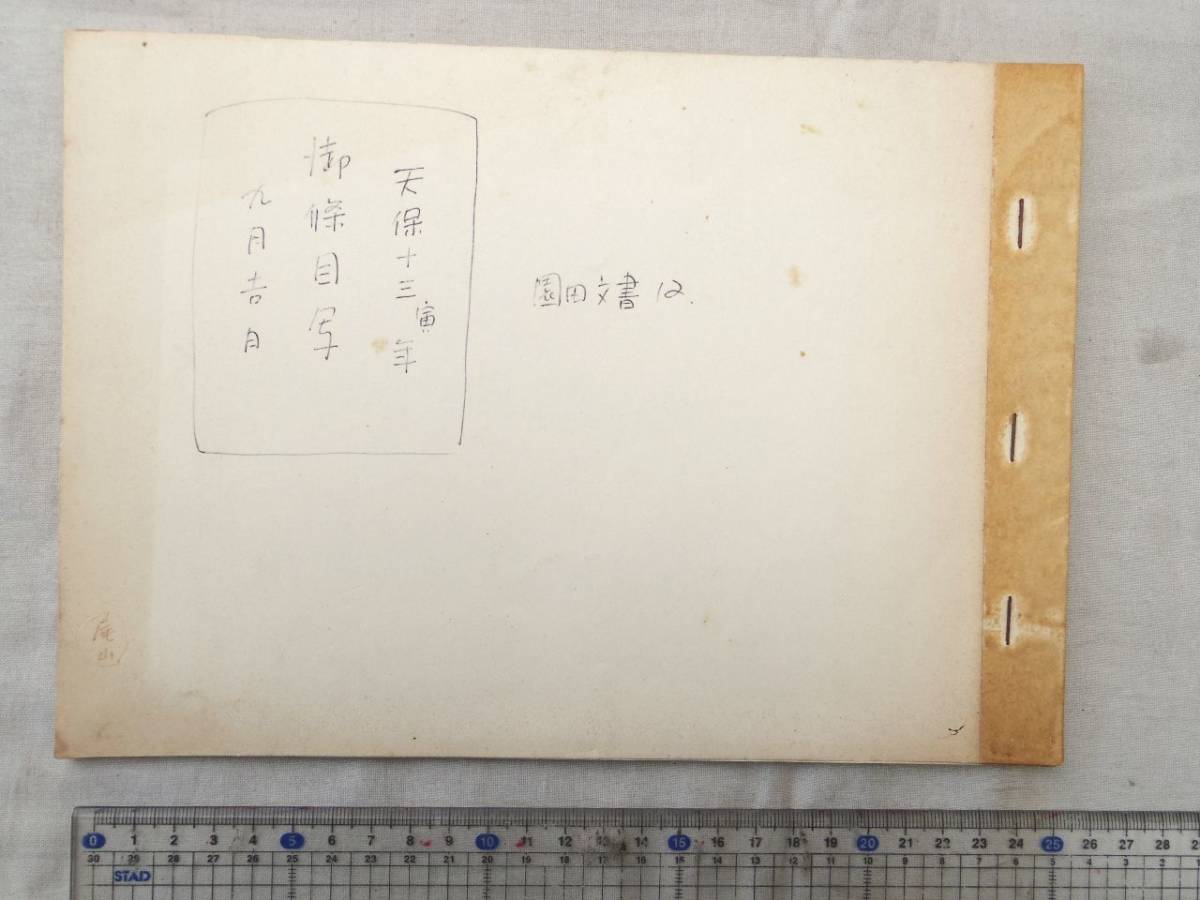 園田文書 12.
天保十三寅年
御條目写
九月吉日
尾山
0 1 2 3 4 5 6 7 8 9 10 11 12 13 14 15 16 17 18 19 20 21 22 23 24 25 26 27 28
30 29 28 27 26 25 24 23 22 21 20 19 18 17 16 15 14 13 12 11 10 9 8 7 6 5 4 3 2
STAD